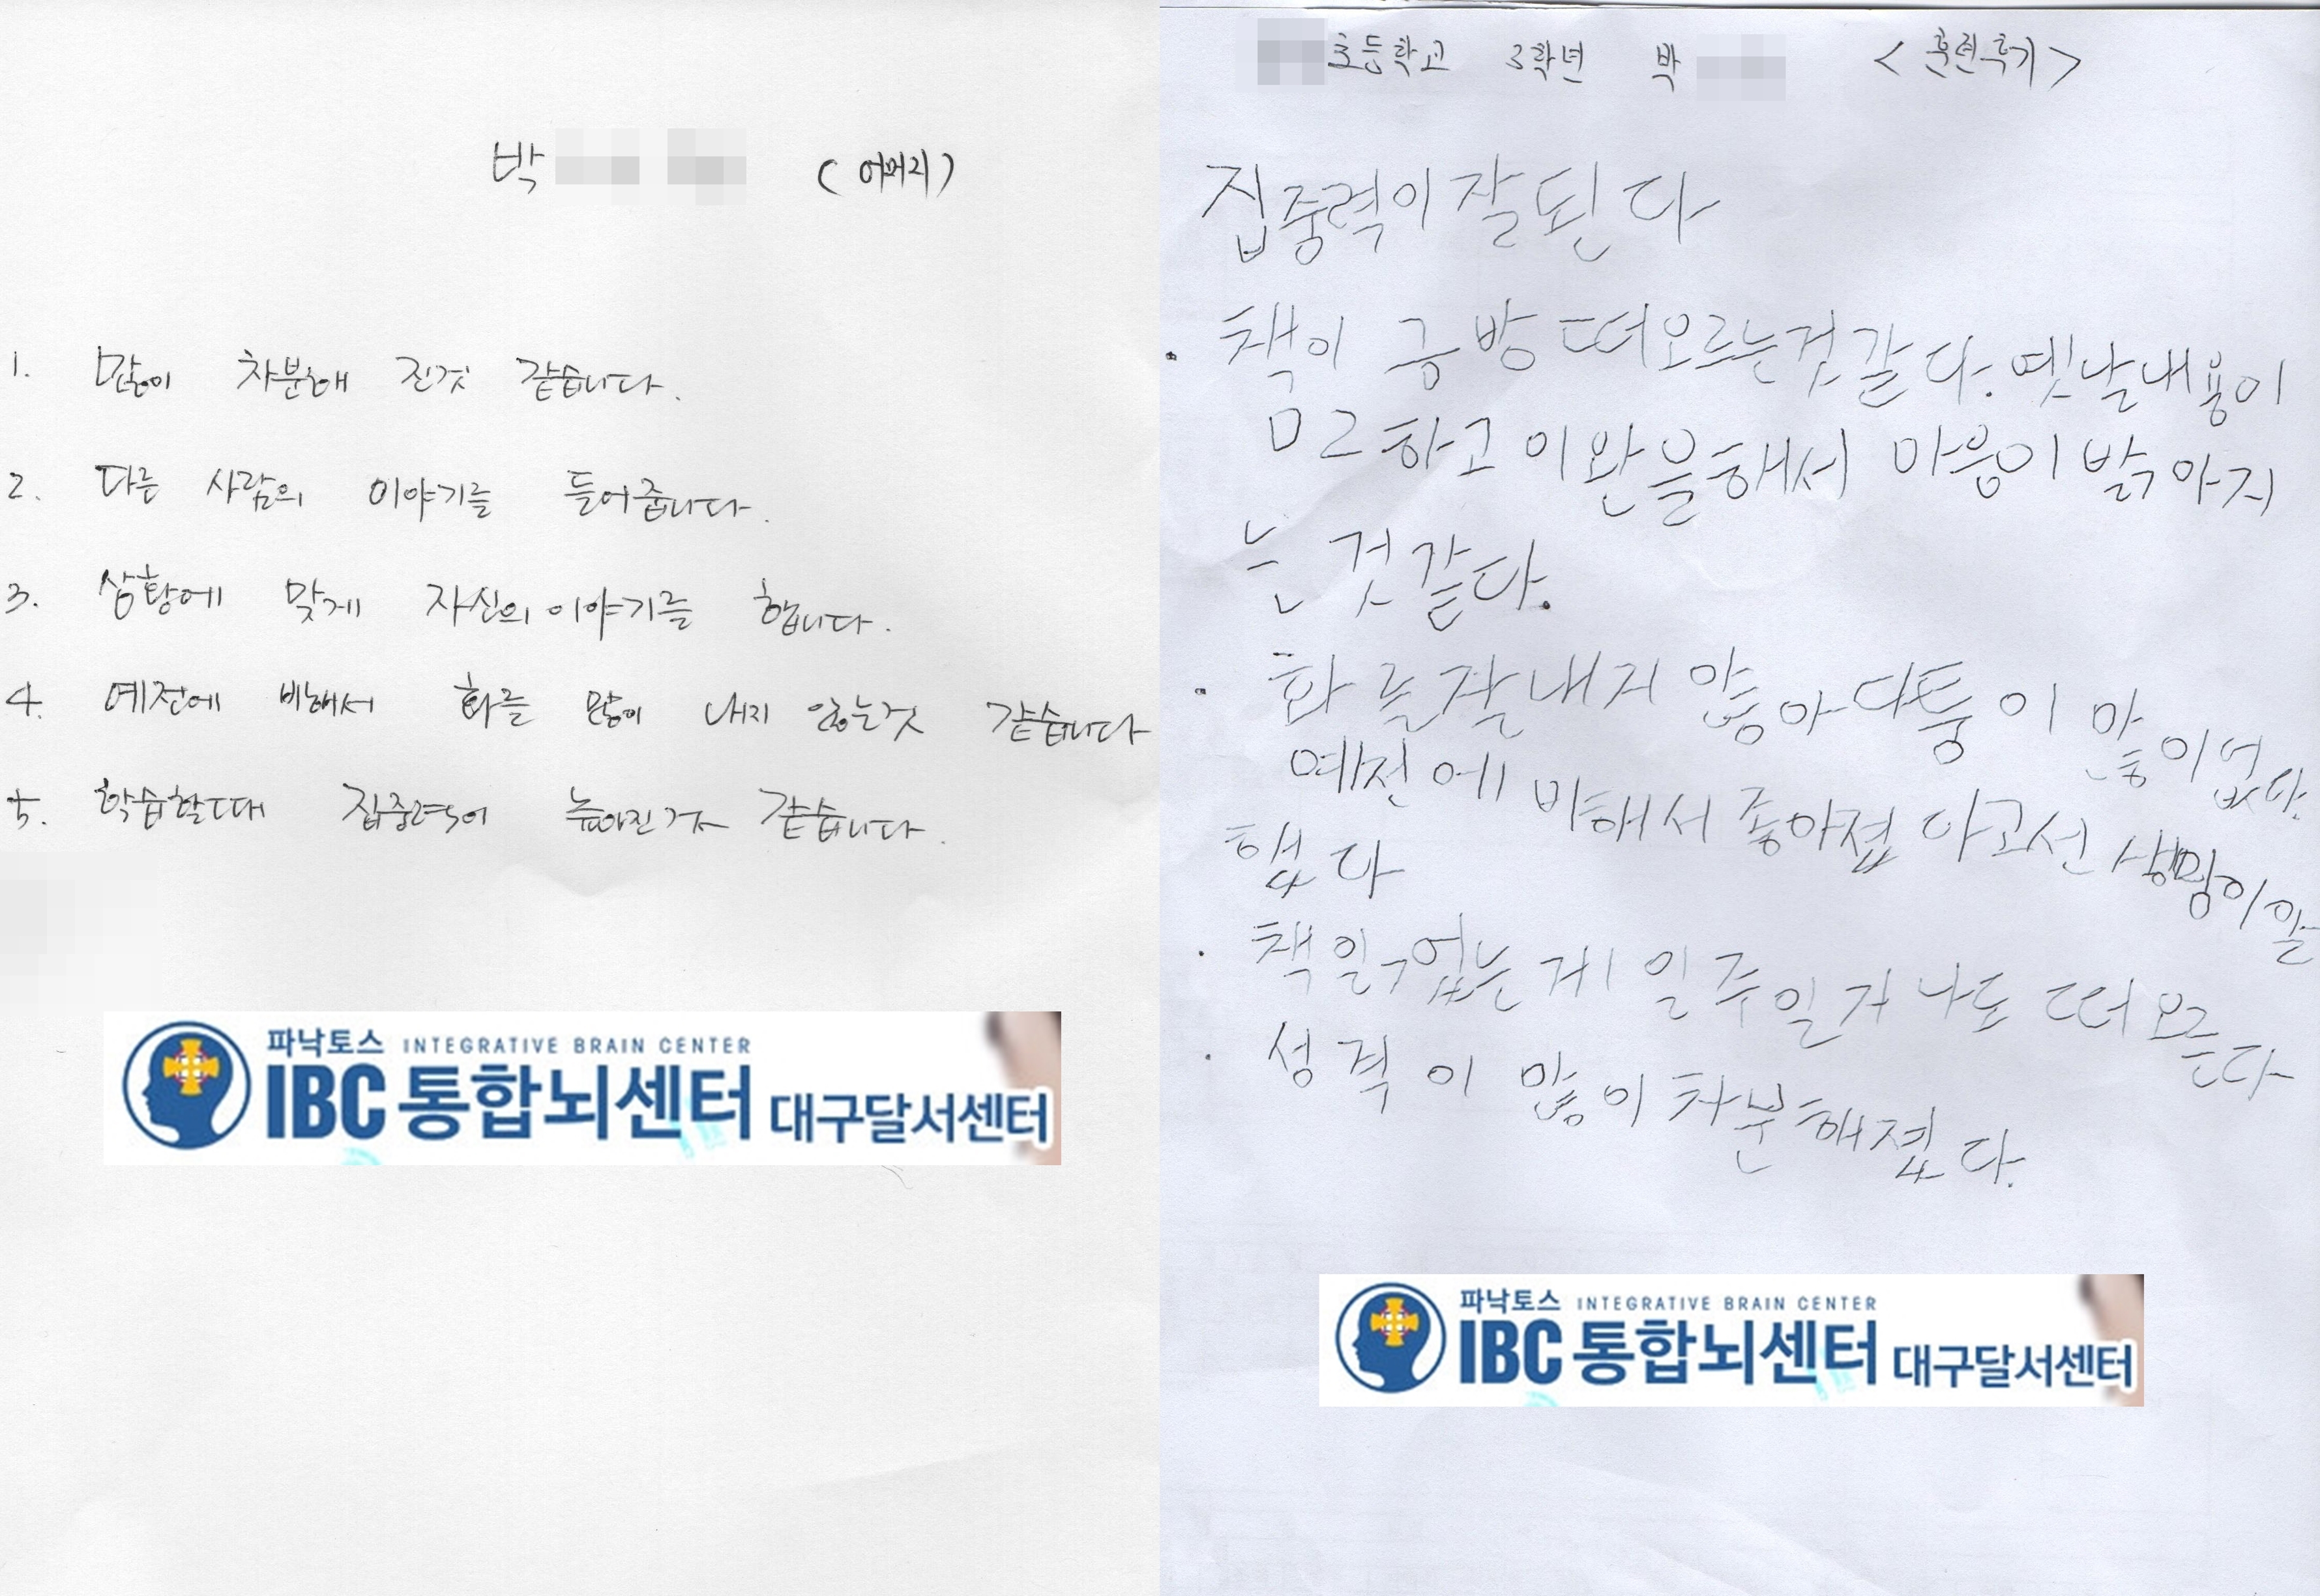 박 (어머니)
1. 많이 차분해 진것 같습니다.
2. 다른 사람의 이야기를 들어줍니다.
3. 상황에 맞게 자신의 이야기를 합니다.
4. 예전에 비해서 화를 많이 내지 않는것 같습니다
5. 학습할때 집중력이 높아진거 같습니다.
파낙토스 INTEGRATIVE BRAIN CENTER
IBC 통합뇌센터 대구달서센터
초등학교 3학년 박 <훈련후기>
집중력이잘된다
· 책이 금방떠오르는것같다. 옛날내용이
하고 마음이밝아지
는것같다.
· 화를잘내지않아다툼이많이없다.
예전에비해서좋아졌다고선생님이말
했다
· 책읽었는게일주일지나도떠오른다
· 성격이많이차분해졌다.
파낙토스 INTEGRATIVE BRAIN CENTER
IBC 통합뇌센터 대구달서센터